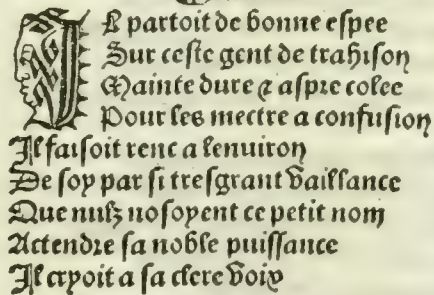 Il partoit de bonne espee
Sur ceste gent de trahison
Mainte dure ⁊ aspre colee
Pour les mectre a confusion
Il faisoit renc a lenuiron
De soy par si tresgrant vaillance
Que nulz nosoyent ce petit nom
Actendre sa noble puissance
Il cryoit a sa clere voix